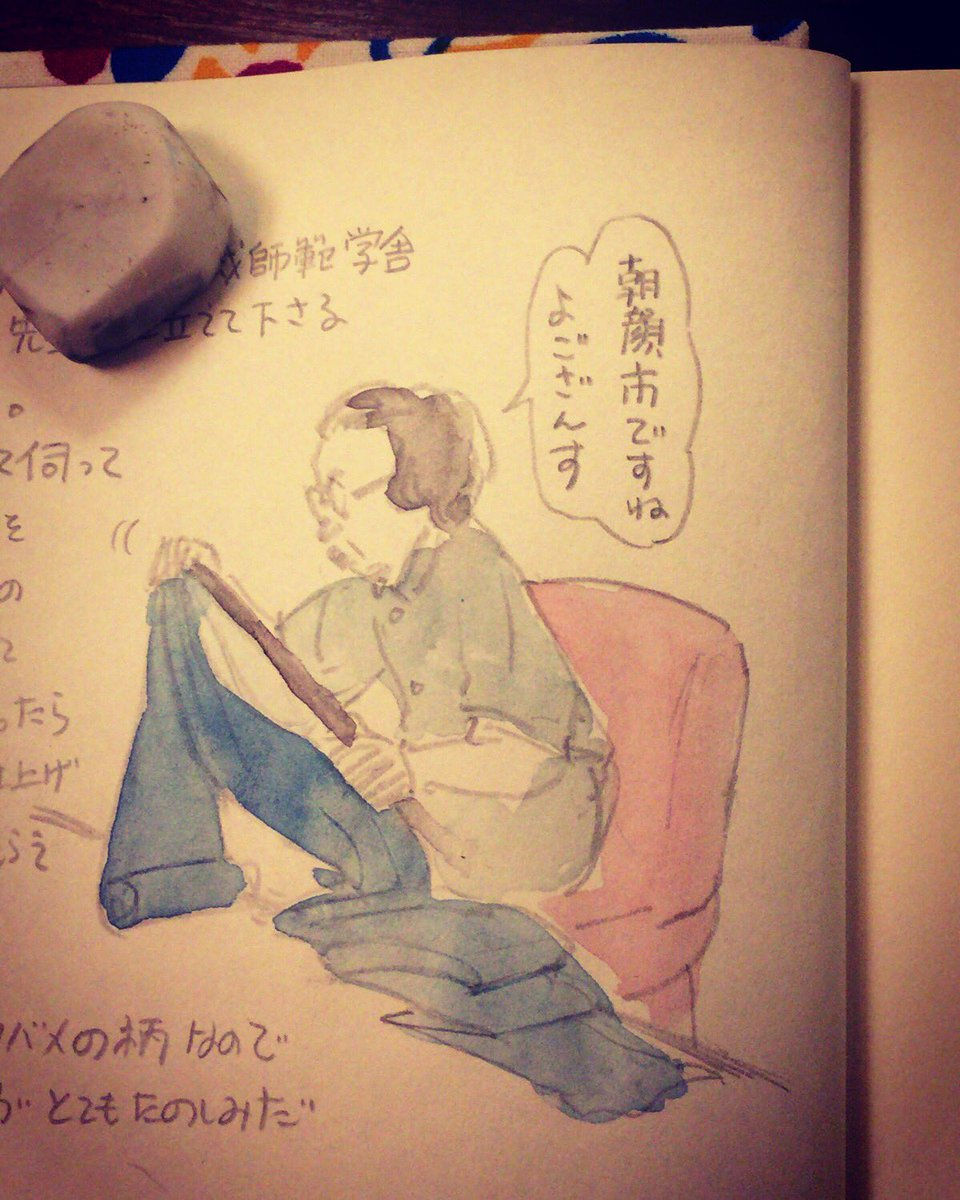 師範学舎
立てて下さる
。
て伺って
を
の
て
ったら
上げ
らえ
朝顔市ですね
よござんす
バメの柄なので
がとてもたのしみだ